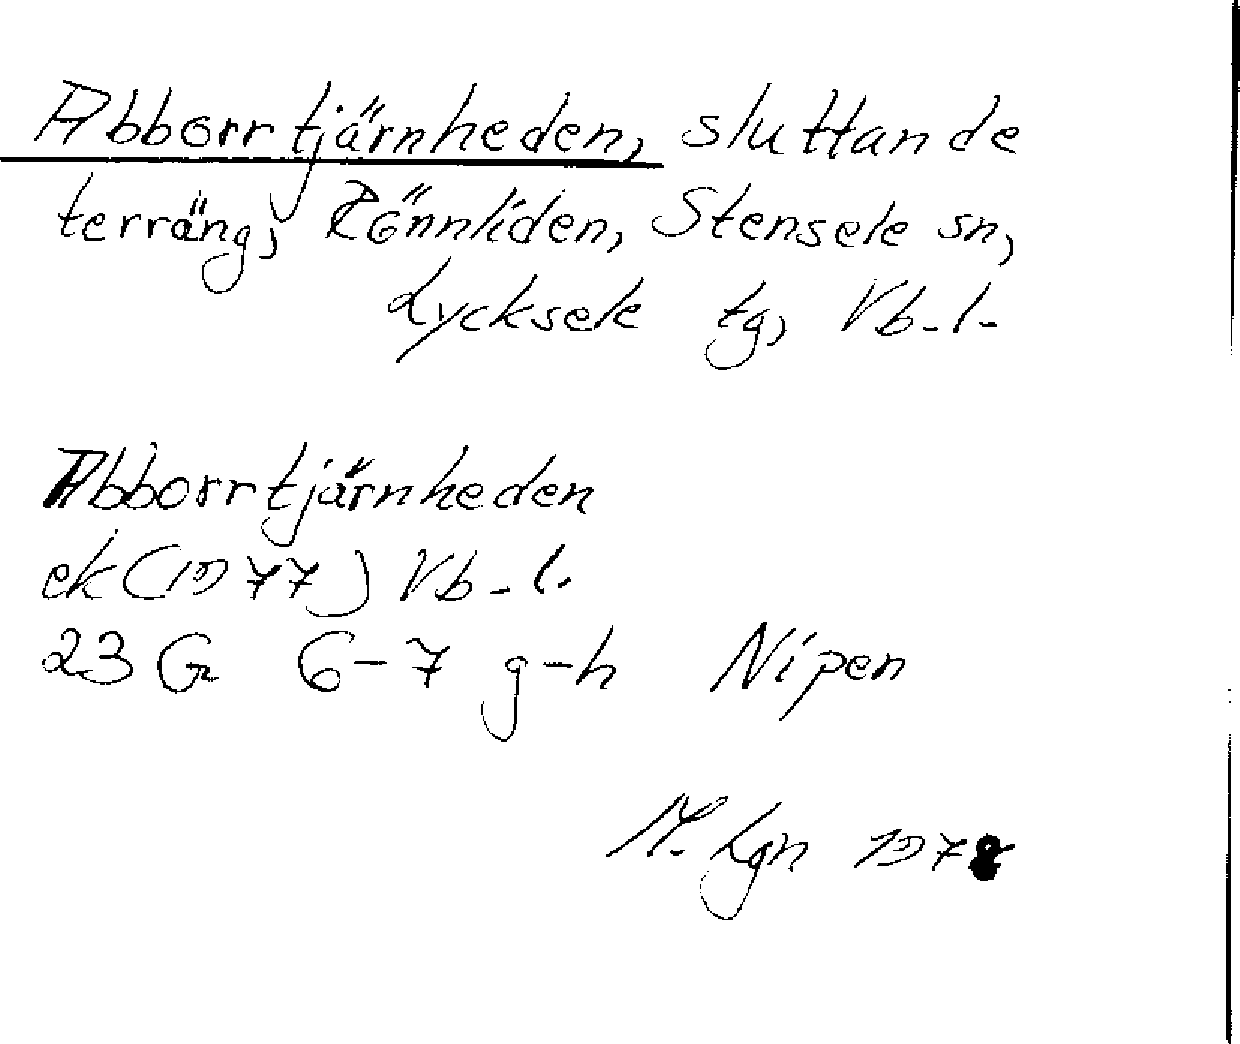 Abborrtjärnheden, sluttande
terräng, Rönnliden, Stensele sn,
Lycksele tg, Vb. l.
Abborrtjärnheden
ek (1977) Vb. l.
23 G 6-7 g-h Nipen
M. Lgn 1978